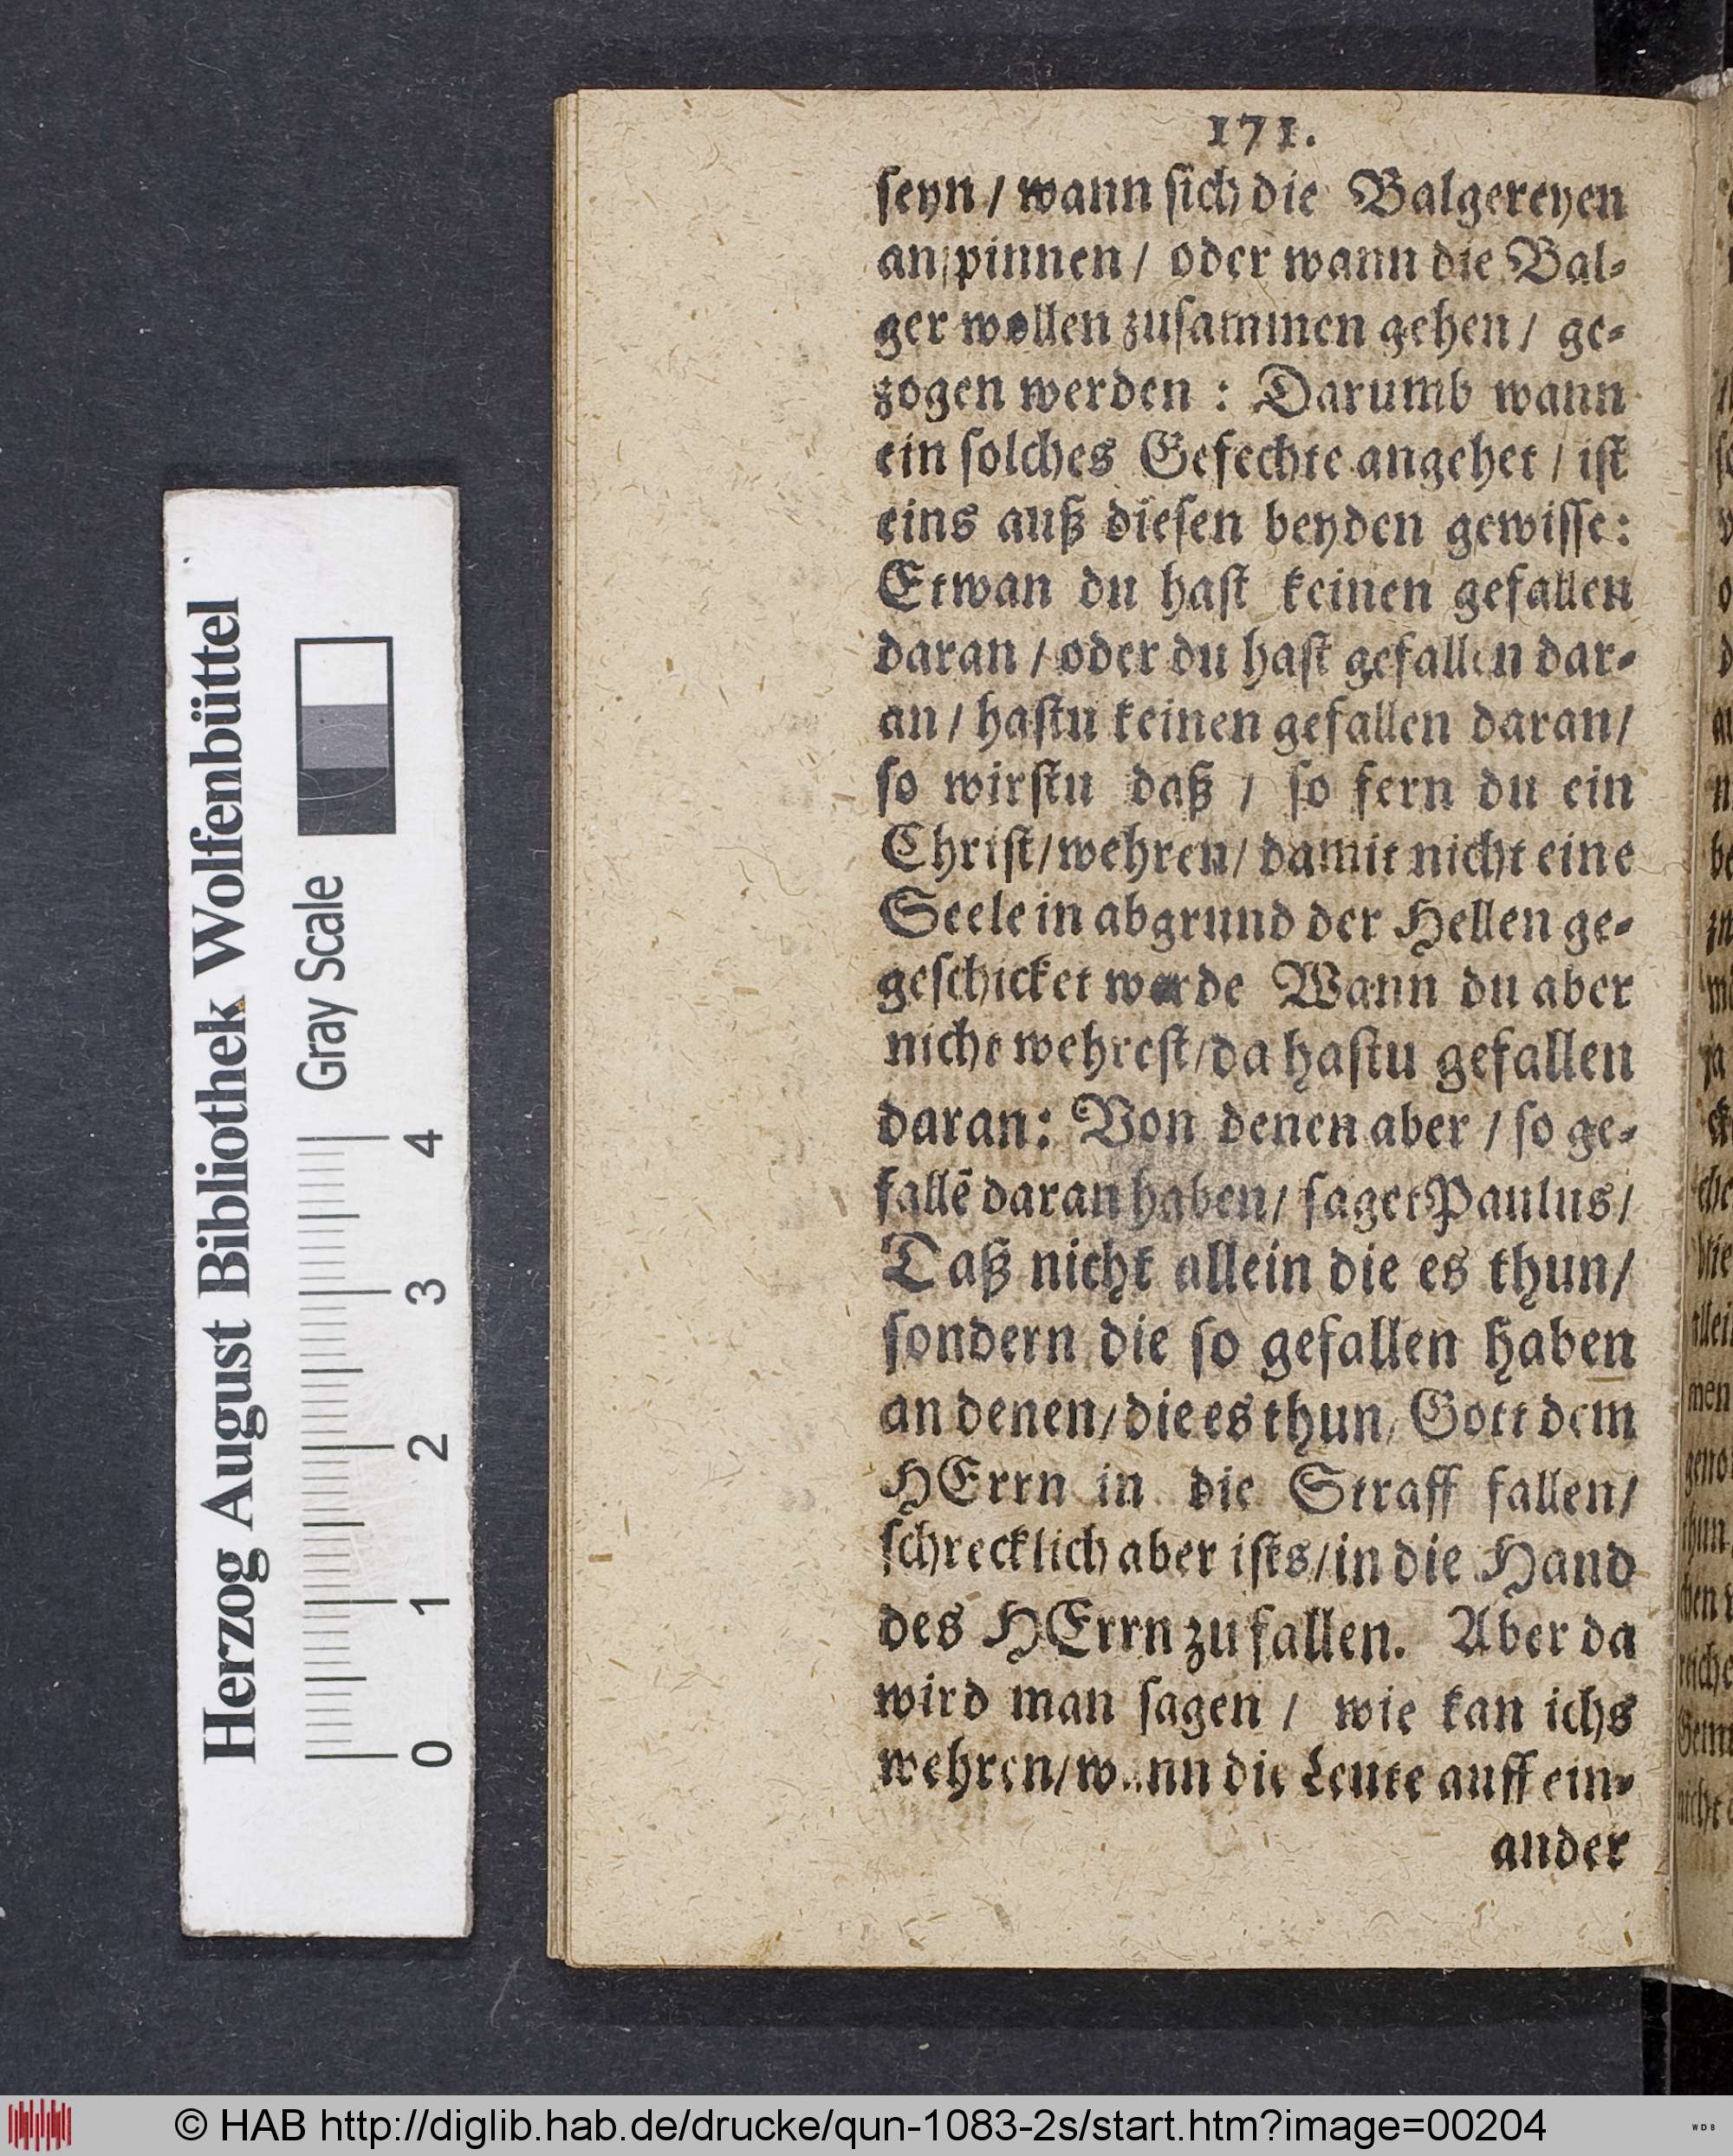 171.
ſeyn / wann ſich die Balgereyen
anſpinnen / oder wann die Bal⸗
ger wollen zuſammen gehen / ge⸗
zogen werden : Darumb wann
ein ſolches Gefechte angehet / iſt
eins auß dieſen beyden gewiſſe:
Etwan du haſt keinen gefallen
daran / oder du haſt gefallen dar⸗
an / haſtu keinen gefallen daran /
ſo wirſtu daß / ſo fern du ein
Chriſt / wehren / damit nicht eine
Seele in abgrund der Hellen ge⸗
geſchicket werde Wann du aber
nicht wehreſt / da haſtu gefallen
daran: Von denen aber / ſo ge⸗
fallẽ daran haben / ſaget Paulus /
Daß nicht allein die es thun /
ſondern die ſo gefallen haben
an denen / die es thun / Gott dem
HErrn in die Straff fallen /
ſchrecklich aber iſts / in die Hand
des HErrn zu fallen. Aber da
wird man ſagen / wie kan ichs
wehren / wann die Leute auff ein⸗
ander
Herzog August Bibliothek Wolfenbüttel
Gray Scale
0 1 2 3 4
© HAB http://diglib.hab.de/drucke/qun-1083-2s/start.htm?image=00204